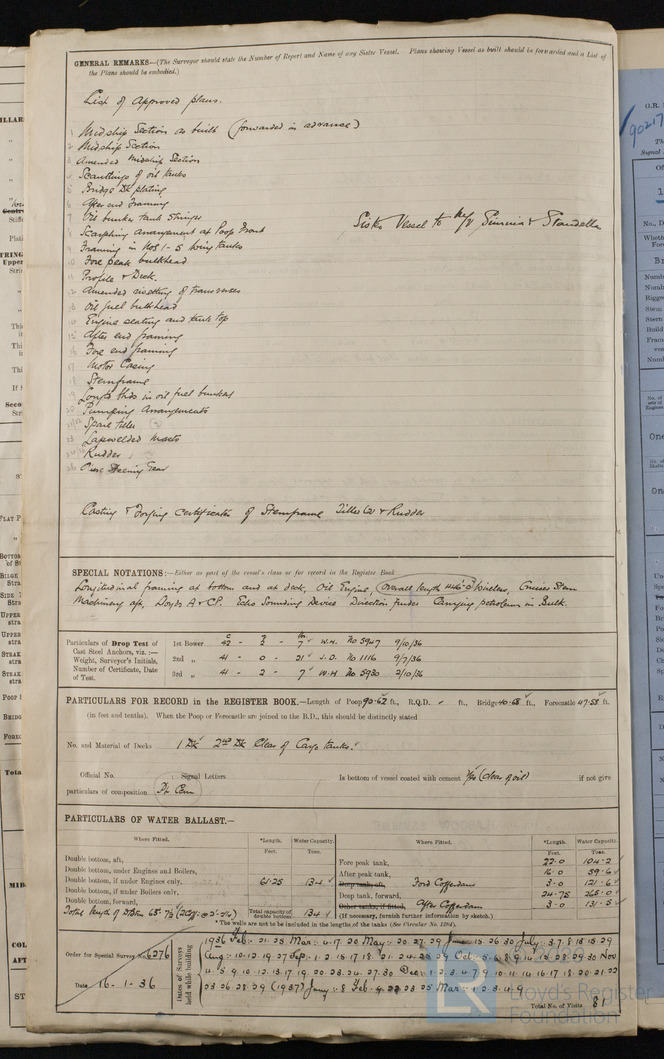 GENERAL REMARKS—(The Surveyor should state the Number of Report and Name of any Sister Vessel. Plans showing Vessel as built should be forwarded and a List of
the Plans should be embodied.)
List of approved plans.
1 Midship Section as built (forwarded in advance)
2 Midship Section
3 Amended Midship Section
4 Scantlings of oil tanks
5 Bridge Dk plating
6 After end Framing
7 Oil bunker tank Stringer
Sister Vessel to M/V
8 Scarphing arrangement at Poop Front
9 Framing in Nos 1-5 wing tanks
10 Fore peak bulkhead
11 Profile & Deck.
12 Amended rivetting of transverses
13 Oil fuel bulkhead
14 Engine seating and tank top
15 After end framing
16 Fore end framing
17 Motor Casing
18 Sternframe
19 Longtl bhds in oil fuel bunkers
20 Pumping Arrangements
21/22 Spare tiller (2)
23 Lapwelded masts
Rudder
Steering Gear
Casting & Forging certificates of Sternframe Tiller (2) & Rudder
SPECIAL NOTATIONS:—Either as part of the vessel's class or for record in the Register Book
Longitudinal framing at bottom and at deck, Oil Engine, Overall length Wireless, Cruiser Stern
Machinery aft, Lloyds A & CP. Echo Sounding Device Direction finder Carrying petroleum in Bulk.
Particulars of Drop Test of
Cast Steel Anchors, viz. :—
Weight, Surveyor's Initials,
Number of Certificate, Date
of Test.
1st Bower 42 - 2 - 7 W.H. No 5947 9/10/36
2nd „ 41 - 0 - 21 J.D. No 1116 9/7/36
3rd „ 41 - 2 - 7 W.H No 5930 2/10/36
PARTICULARS FOR RECORD in the REGISTER BOOK.—Length of Poop 90.62 ft., R.Q.D. ft., Bridge 40.68 ft., Forecastle 47.58 ft.
(in feet and tenths). When the Poop or Forecastle are joined to the B.D., this should be distinctly stated
No. and Material of Decks 1 Dk 2nd Dk Clear of Cargo tanks.
Official No. Signal Letters Is bottom of vessel coated with cement Yes (clear of oil) if not give
particulars of composition Pt Cem
PARTICULARS OF WATER BALLAST.—
Where Fitted. *Length. Feet. Water Capacity. Tons.
Double bottom, aft,
Double bottom, under Engines and Boilers,
Double bottom, if under Engines only, 61.25 134
Double bottom, if under Boilers only,
Double bottom, forward,
Total capacity of double bottom 134
Where Fitted. *Length. Feet. Water Capacity. Tons.
Fore peak tank, 22.0 104.2
After peak tank, 16.0 59.6
Deep tank, aft, Ford Cofferdam 3.0 121.6
Deep tank, forward, 24.75 265.0
Other tanks, if fitted, After Cofferdam 3.0 131.5
(If necessary, furnish further information by sketch.)
* The wells are not to be included in the lengths of the tanks (See Circular No. 1284).
Order for Special Survey No. 6276
Date 16.1.36
Dates of Surveys
held while building
1936 Feb. 21.25 Mar: 4.17.20 May: 20.27.29 June 15.26.30 July 3.7.8.13.15.29
Aug: 10.12.19.27 Sep. 1.2.15.17.18.21.24.28.29 Oct. 5.6.8.9.14.15.28.29.30 Nov
4.5.9.10.12.13.17.19.20.23.24.27.30 Dec. 1.2.3.4.7.9.10.11.14.16.17.18.20.21.22
23.26.28.29 (1937) Jany: 8 Feb. 23.25 Mar: 1.2.3.4.9.
Total No. of Visits 81
Lloyd's Register
Foundation